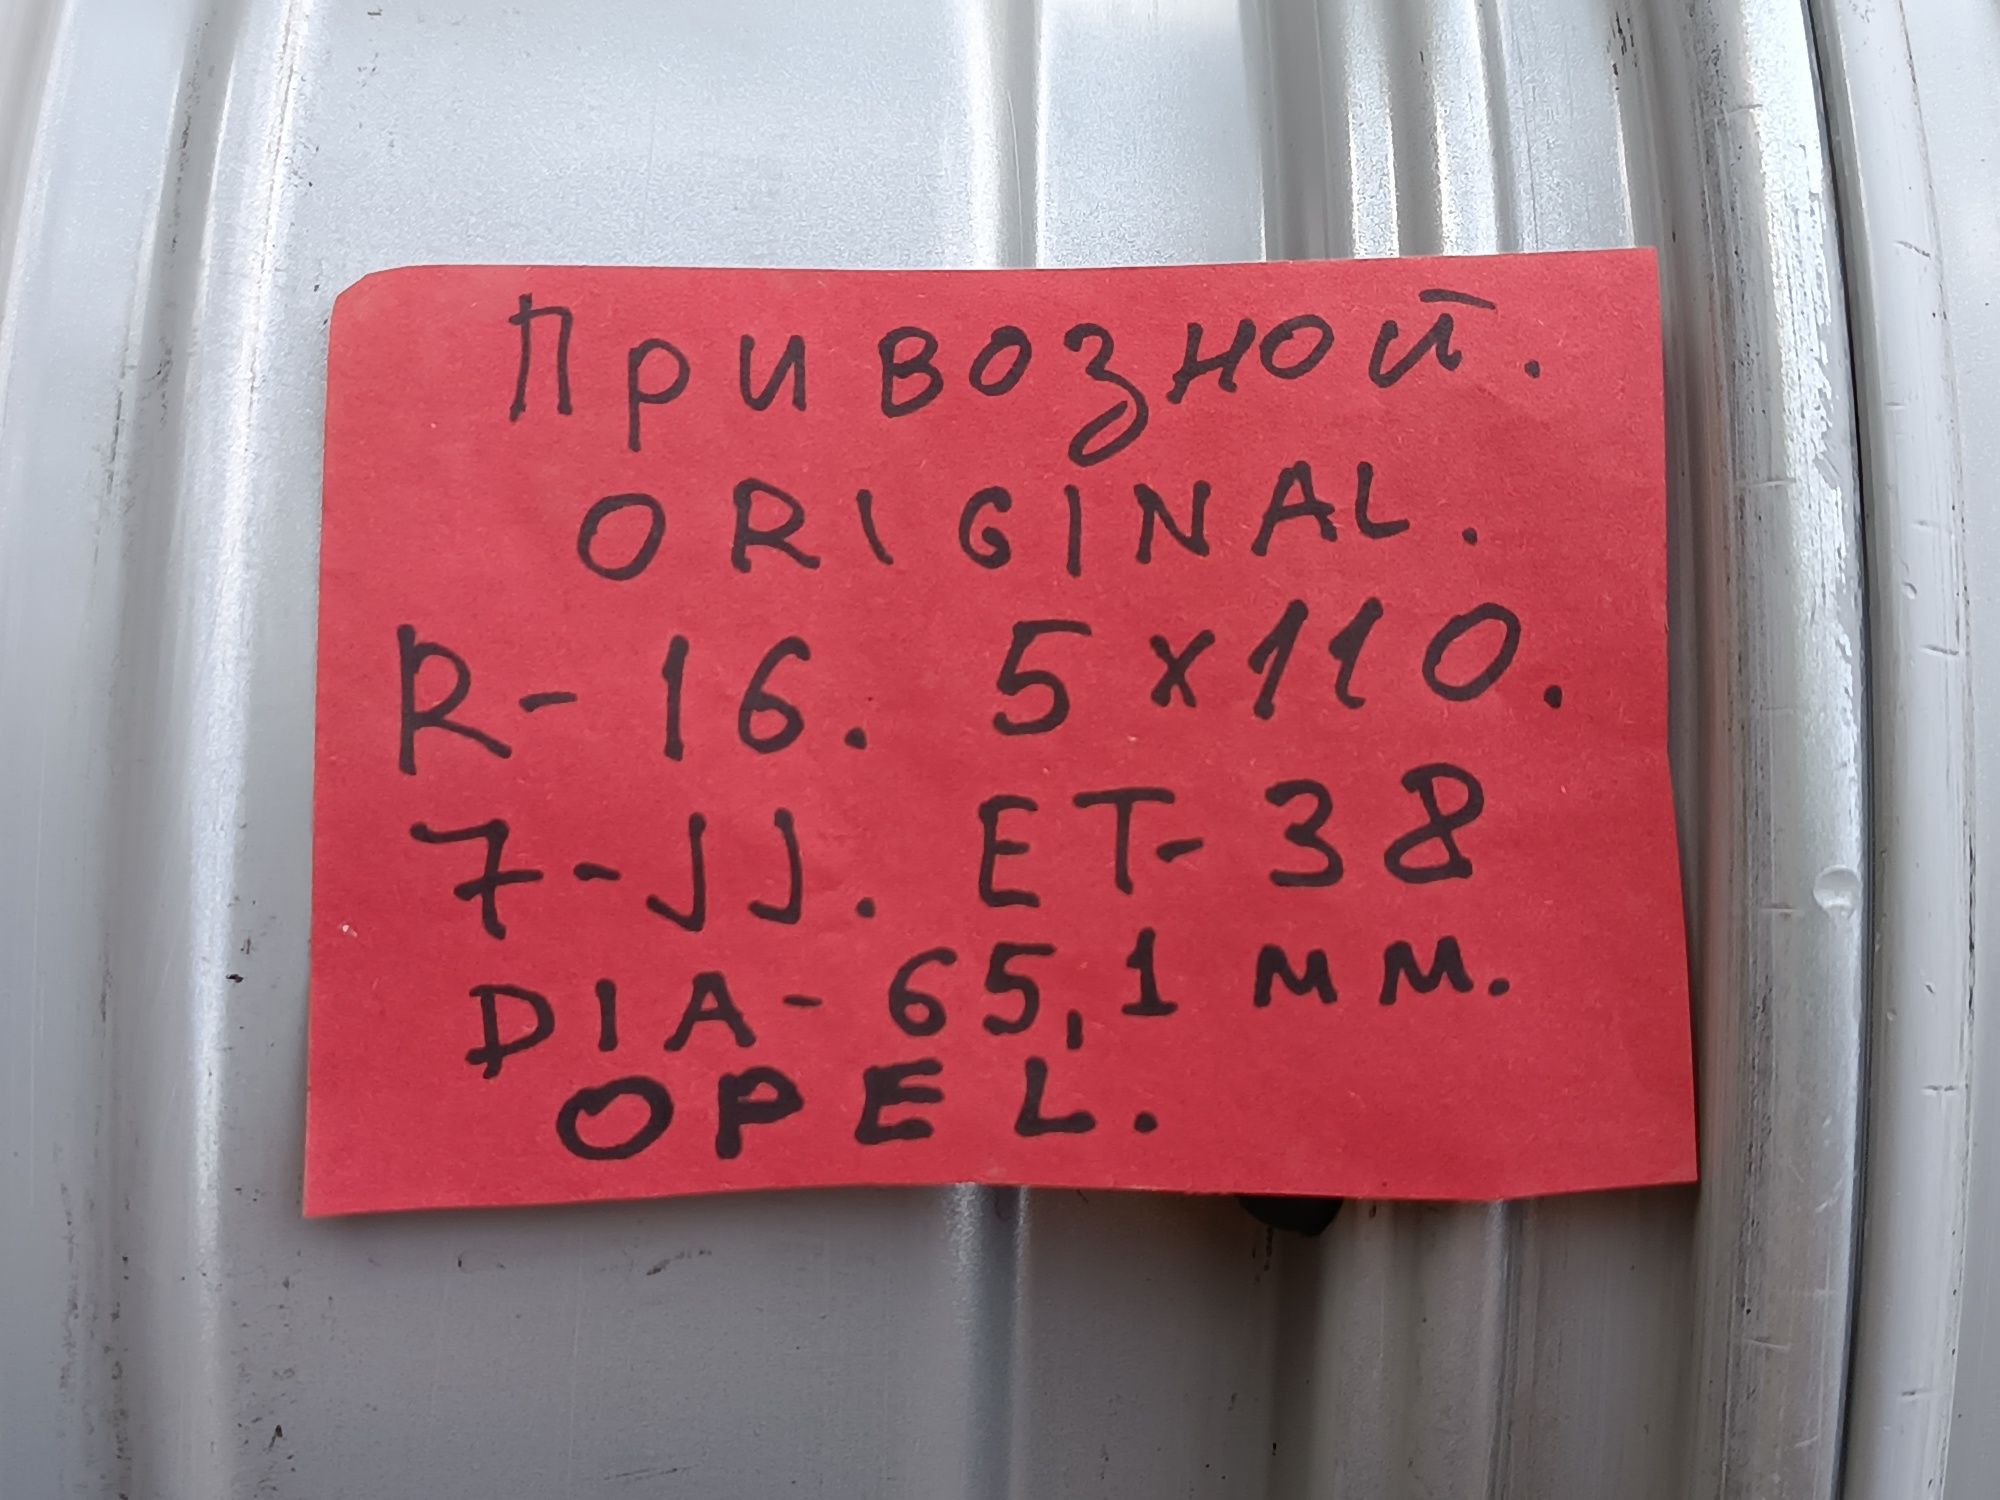 Привозной.
ORIGINAL.
R-16. 5x110.
7-JJ. ET-38
DIA-65,1 мм.
OPEL.